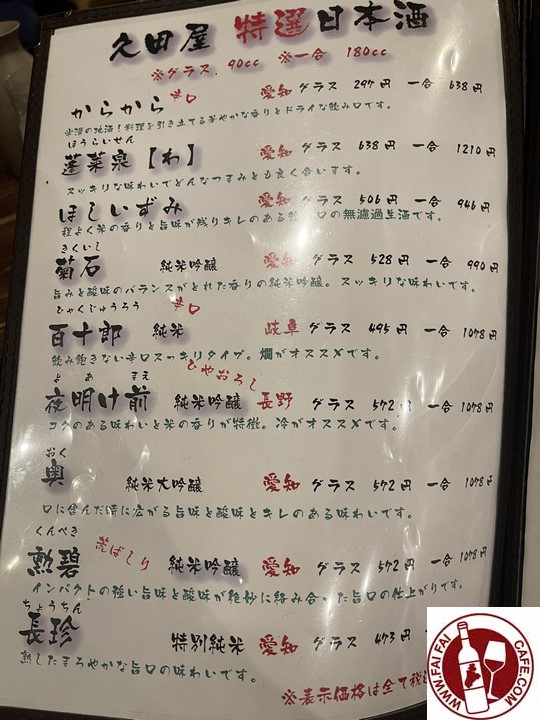 久田屋 特選日本酒
※グラス 90cc ※一合 180cc
からから 辛口 愛知 グラス 297円 一合 638円
常滑の地酒！料理を引き立てる華やかな香りとドライな飲み口です。
ほうらいせん
蓬莱泉【わ】 愛知 グラス 638円 一合 1210円
スッキリな味わいでどんなつまみとも良く合います。
ほしいずみ 愛知 グラス 506円 一合 946円
程よく米の香りと旨味が残りキレのある 口の無濾過生酒です。
きくいし
菊石 純米吟醸 愛知 グラス 528円 一合 990円
旨みと酸味のバランスがとれた香りの純米吟醸。スッキリな味わいです。
ひゃくじゅうろう 辛口
百十郎 純米 岐阜 グラス 495円 一合 1078円
飲み飽きない辛口スッキリタイプ。燗がオススメです。
よ あ まえ ひやおろし
夜明け前 純米吟醸 長野 グラス 572円 一合 1078円
コクのある味わいと米の香りが特徴。冷がオススメです。
おく
奥 純米大吟醸 愛知 グラス 572円 一合 1078円
口に含んだ時に広がる旨味と酸味とキレのある味わいです。
くんぺき 荒ばしり
勲碧 純米吟醸 愛知 グラス 572円 一合 1078円
インパクトの強い旨味と酸味が絶妙に絡み合った旨口の仕上がりです。
ちょうちん
長珍 特別純米 愛知 グラス 473円
熟したまろやかな旨口の味わいです。
※表示価格は全て税
WWW.FAIFAICAFE.COM